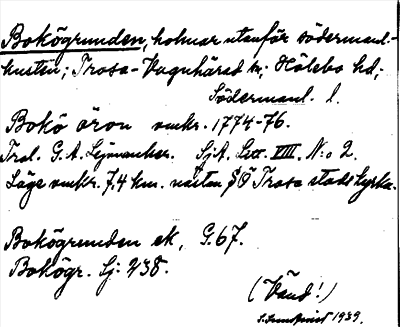 Bokögrunden, holmar utanför södermanl.-
kusten; Trosa-Vagnhärad sn, Hölebo hd,
Södermanl. l.
Bokö öron omkr. 1774-76.
Tral. G. A. Leijonancker. Sj.A. Litt. VIII. N:o 2.
Läge omkr. 7,4 km. nästan SÖ Trosa stads kyrka.
Bokögrunden ek, G.67.
Bokögr. Sj: 238.
(Vänd!)
1939.